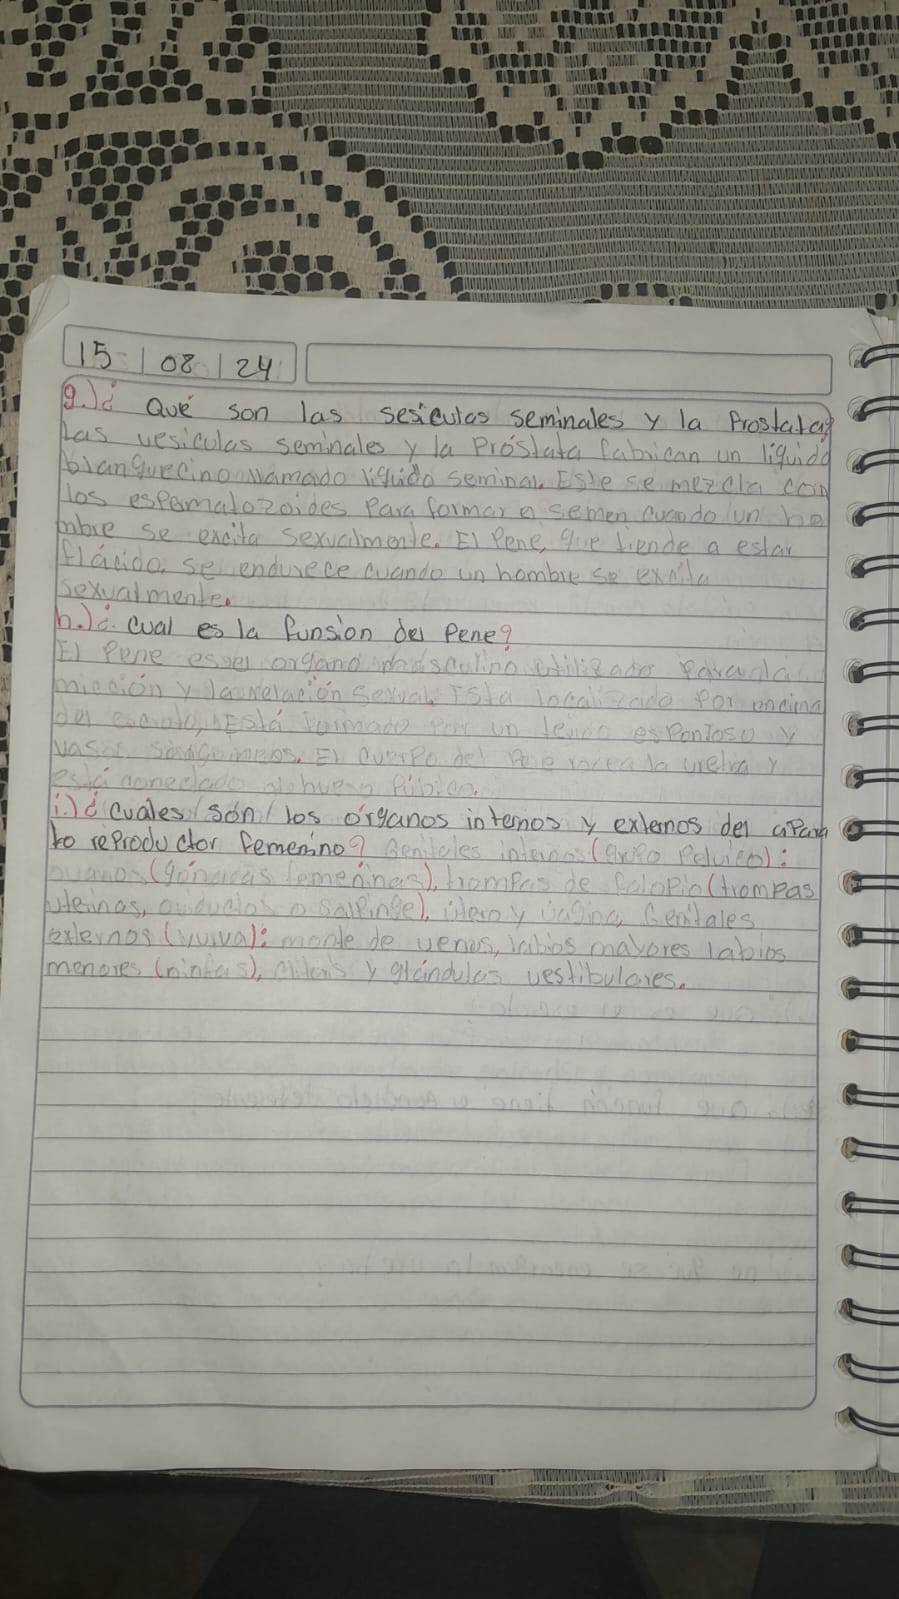 15 / 08 / 24
g.) ¿ Qué son las sesiculas seminales y la Prostata?
Las vesiculas seminales y la Próstata fabrican un liquido
blanquecino llamado liquido seminal. Este se mezcla con
los espematozoides Para formar el semen cuando un ho
mbre se excita sexualmente. El Pene, que tiende a estar
flácido, se endurece cuando un hombre se excita
sexualmente.
h.) ¿ Cual es la funsion del Pene?
El Pene es el organo masculino utilizado Para la
micción y la relación sexual. Esta localizado Por encima
del escroto, Está formado Por un tejido esponjoso y
vasos sanguineos. El cuerpo del Pene rodea la uretra y
está conectado al hueso Púbico.
i.) ¿ Cuales són los órganos internos y externos del aPara
to reProductor femenino? Genitales internos (grupo Pelvico):
(gónadas femeninas), trompas de falopio (trompas
uterinas, oviductos o salpinge), útero y vagina, Genitales
externos (vulva): monte de venus, labios mayores labios
menores (ninfas), clitoris y glándulas vestibulares.